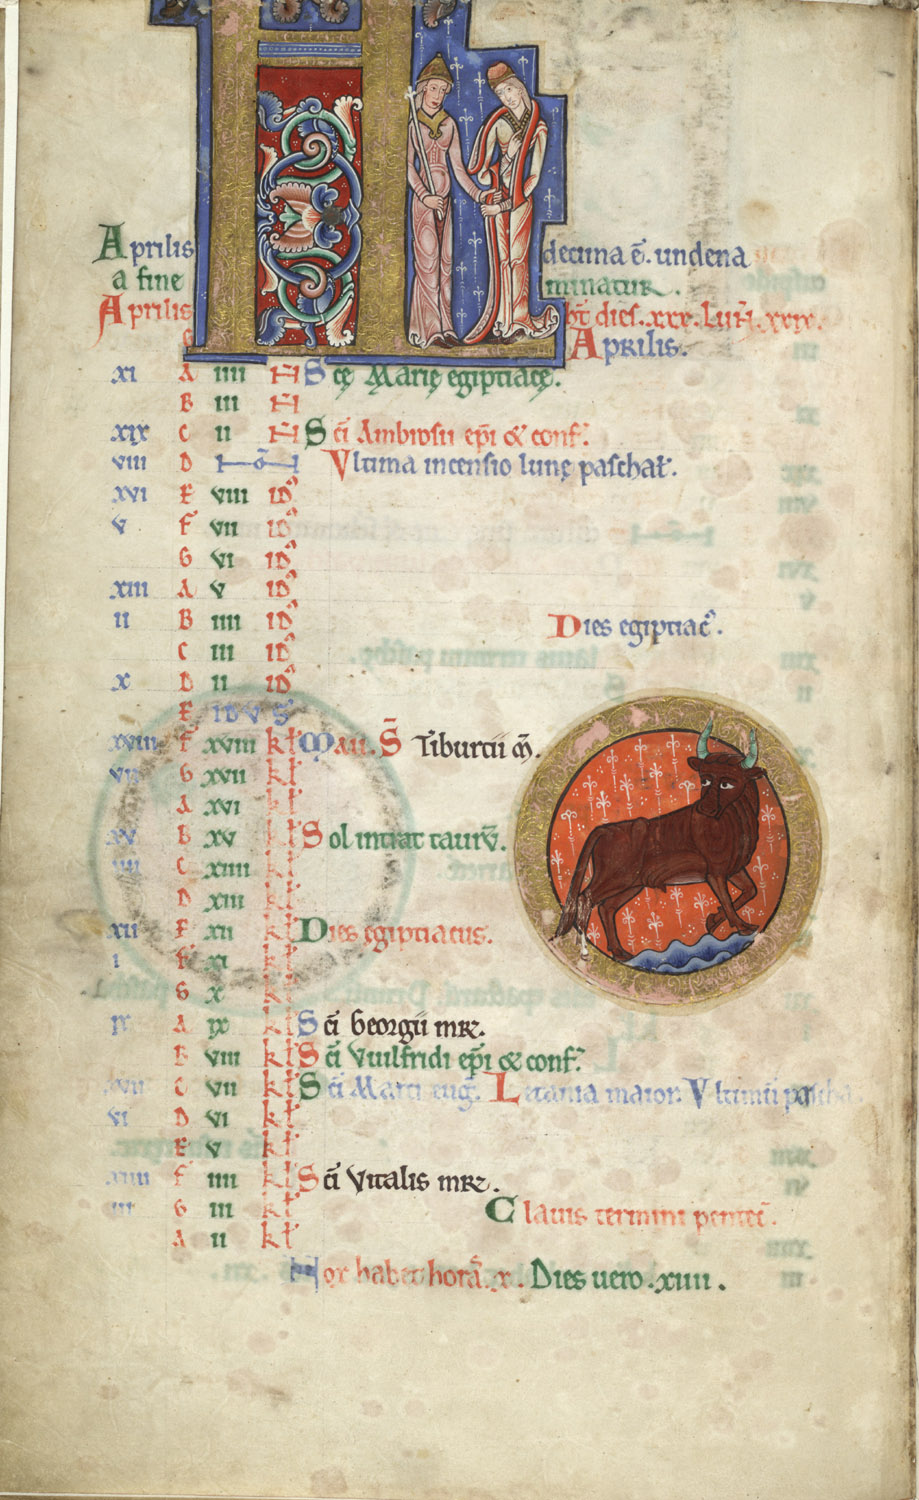 Aprilis decima ē. undena
a fine minatur.
Aprilis ħt dies. xxx. Lun̄. xxix.
Aprilis.
xi A iiii N Scę Marię egiptiacę.
B iii N
xix C ii N Sc̄i Ambrosii ep̄i & conf̄.
viii D NōN Vltima incensio lunę paschał.
xvi E viii id'
v F vii id'
G vi id'
xiii A v id'
ii B iiii id' Dies egiptiac'.
C iii id'
x D ii id'
E IDVS
xviii F xviii kł Mai. S̄ Tiburtii m̄.
vii G xvii kł
A xvi kł
xv B xv kł Sol intrat taurū.
iiii C xiiii kł
D xiii kł
xii E xii kł Dies egiptiacus.
i F xi kł
G x kł
ix A ix kł Sc̄i Georgii mr̄.
B viii kł Sc̄i Vuilfridi ep̄i & conf̄.
xvii C vii kł Sc̄i Marci euḡ. Letania maior. Vltimū pascha
vi D vi kł
E v kł
xiiii F iiii kł Sc̄i Vitalis mr̄.
iii G iii kł Clauis termini pentec̄.
A ii kł
Nox habet horā. x. Dies uero. xiiii.